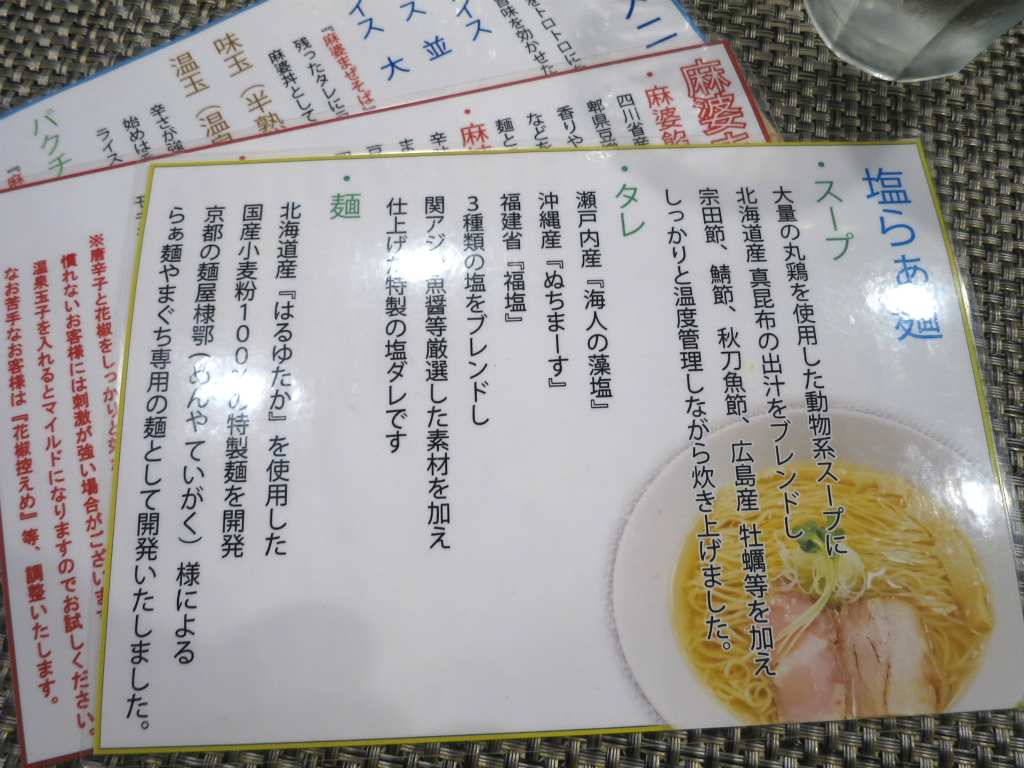 塩らぁ麺
・スープ
大量の丸鶏を使用した動物系スープに
北海道産 真昆布の出汁をブレンドし
宗田節、鯖節、秋刀魚節、広島産 牡蠣等を加え
しっかりと温度管理しながら炊き上げました。
・タレ
瀬戸内産『海人の藻塩』
沖縄産『ぬちまーす』
福建省『福塩』
3種類の塩をブレンドし
関アジ、魚醤等厳選した素材を加え
仕上げた特製の塩ダレです
・麺
北海道産『はるゆたか』を使用した
国産小麦粉100%の特製麺を開発
京都の麺屋棣鄂(めんや ていがく)様による
らぁ麺やまぐち専用の麺として開発いたしました。
・麻婆餡
四川省産
郫県豆
香りや
などを
麺と
※唐辛子と花椒をしっかりと
慣れないお客様には刺激が強い場合がございます
温泉玉子を入れるとマイルドになりますのでお試しください。
なお苦手なお客様は『花椒控えめ』等、調整いたします。
イス
ス 並
イス 大
をトロトロに
旨味を効かせた
『麻婆まぜそば』
残ったタレに
麻婆丼として
味玉(半熟
温玉(温
辛さが強
始めは
ライス
パクチ